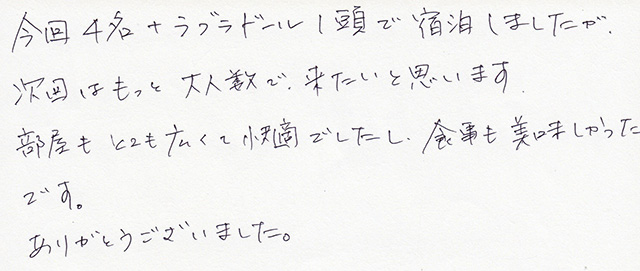 今回4名+ラブラドール1頭で宿泊しましたが、
次回はもっと大人数で、来たいと思います。
部屋もとても広くて快適でしたし、食事も美味しかった
です。
ありがとうございました。